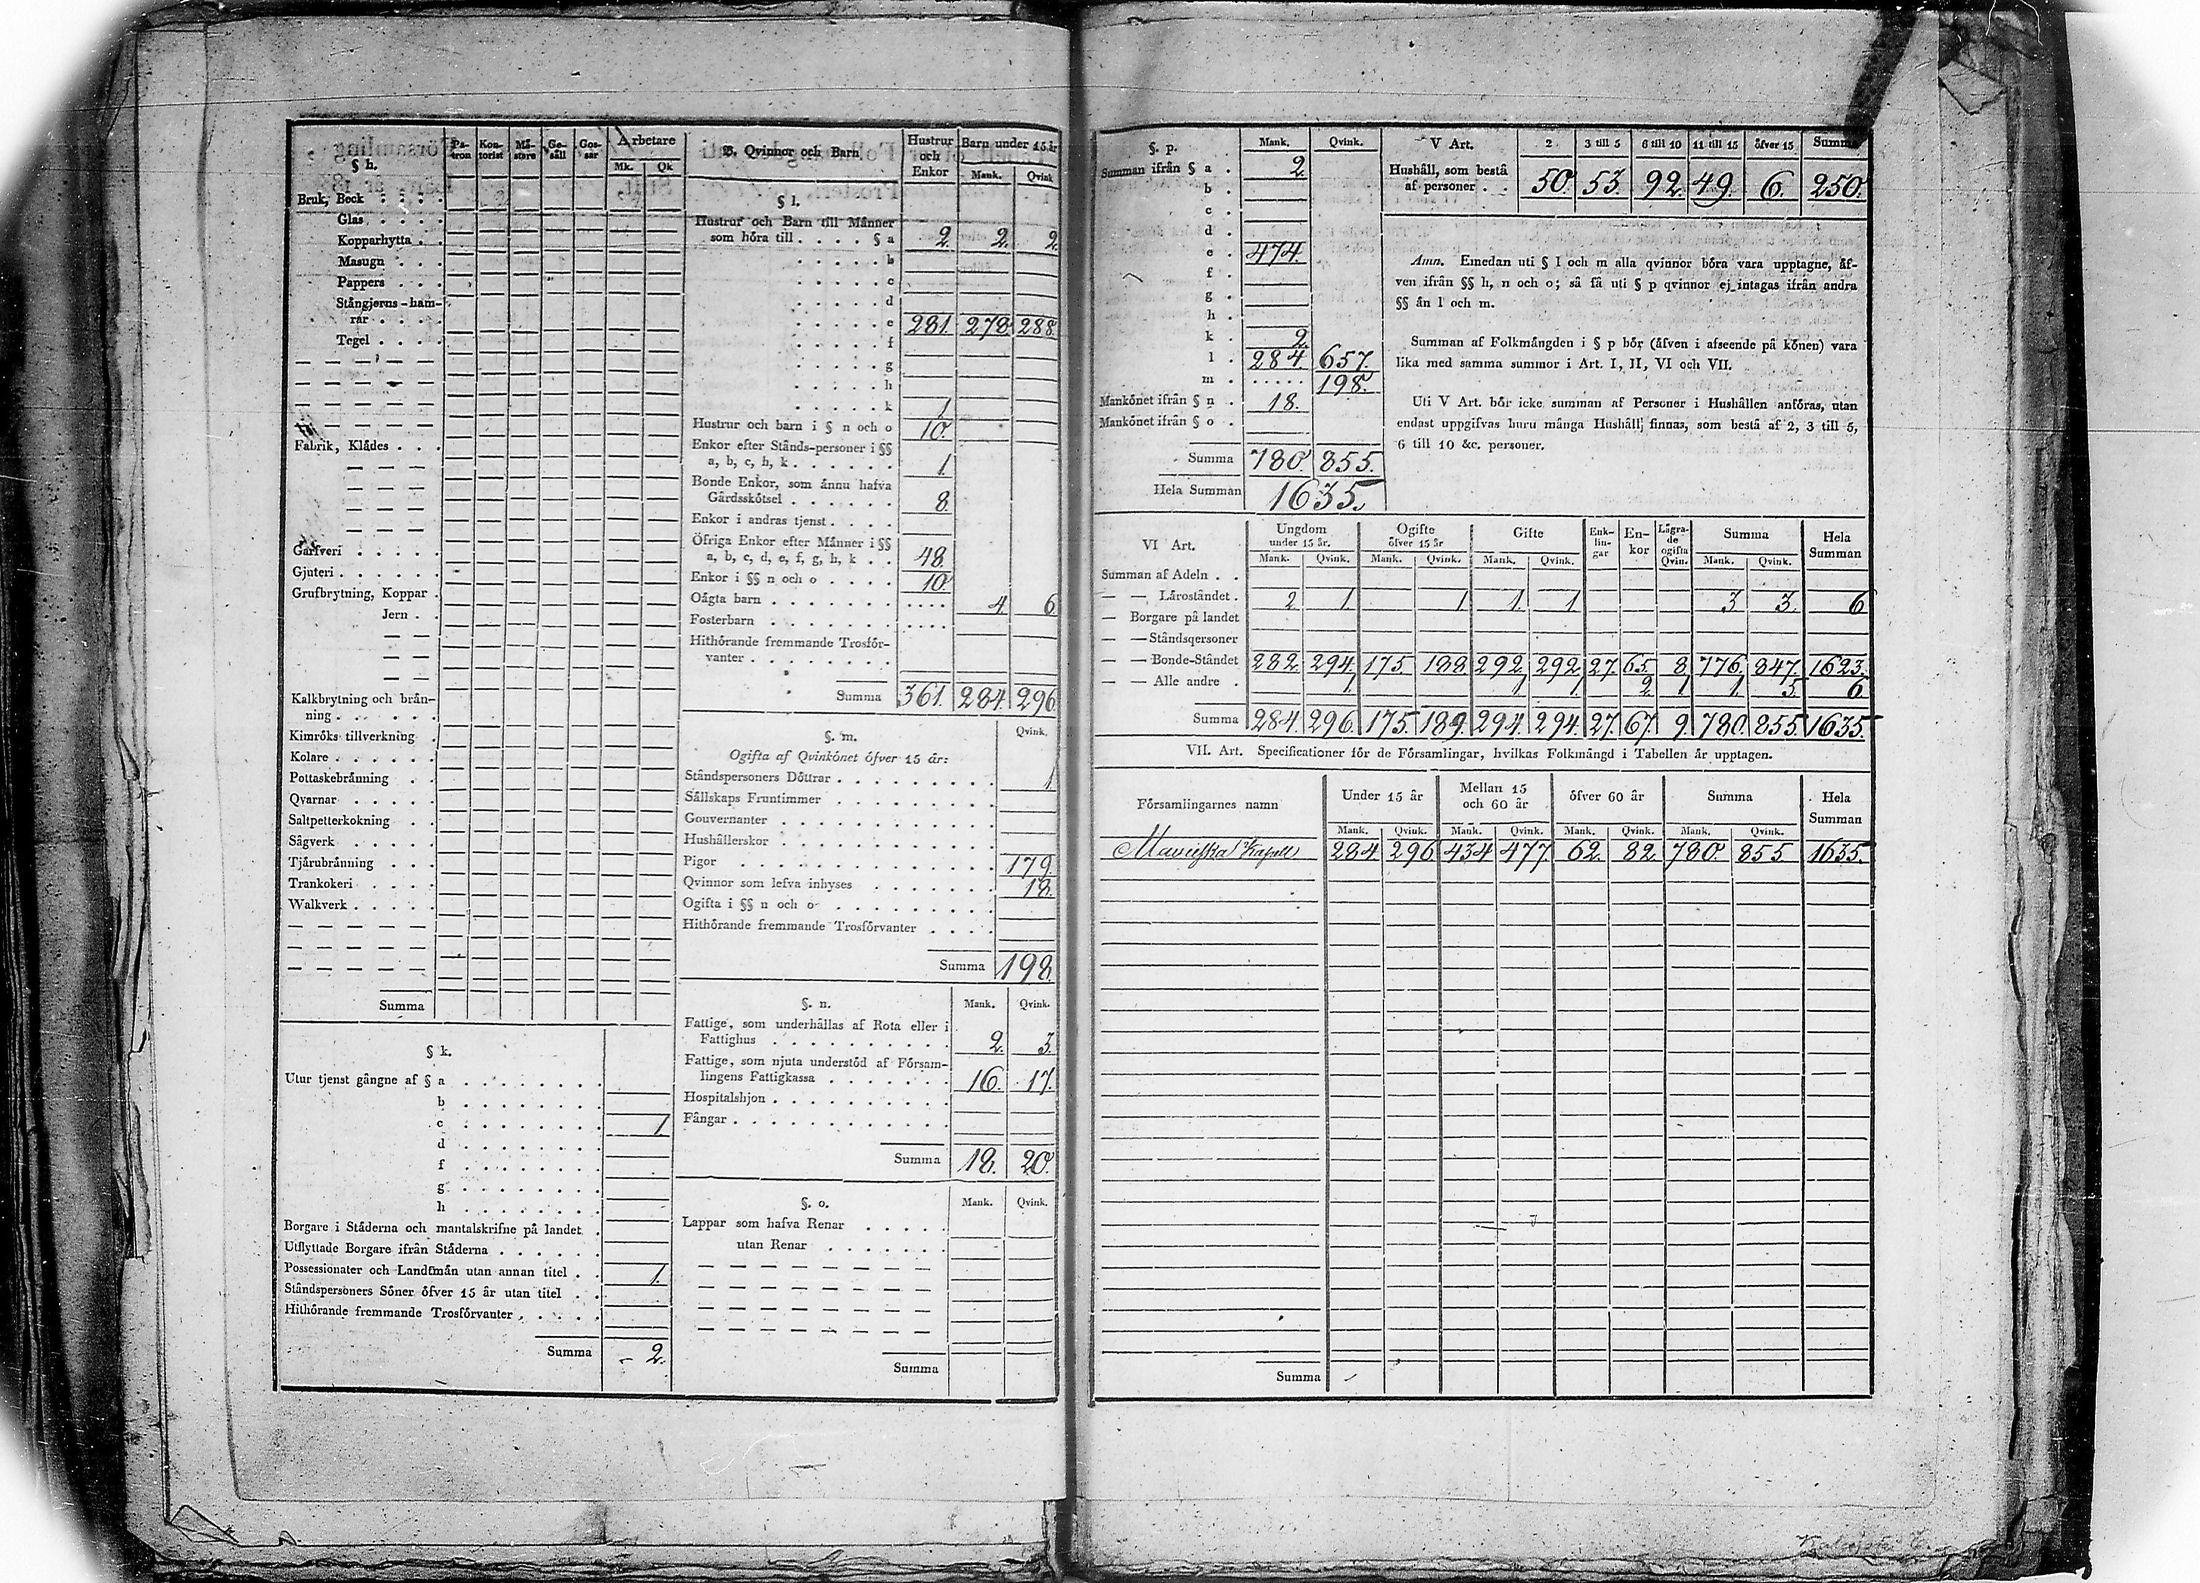 § h.
Pa-tron Kon-torist Mä-stare Ge-säll Gos-sar Arbetare
Mk. Qk
Bruk, Beck . . . .
Glas . . . .
Kopparhytta . .
Masugn . . .
Pappers . . .
Stångjerns-ham-
rar . . . .
Tegel . . . .
Fabrik, Klådes . . .
Garfveri . . . . .
Gjuteri . . . . . .
Grufbrytning, Koppar .
Jern . .
Kalkbrytning och brån-
ning . . . . . .
Kimröks tillverkning .
Kolare . . . . . .
Pottaskebrånning . .
Qvarnar . . . . .
Saltpetterkokning . .
Sågverk . . . . .
Tjårubrånning . . .
Trankokeri . . . .
Walkverk . . . . .
Summa
§ k.
Utur tjenst gångne af § a . . . . . . .
b . . . . . . .
c . . . . . . . 1
d . . . . . . .
f . . . . . . .
g . . . . . . .
h . . . . . . .
Borgare i Ståderna och mantalskrifne på landet .
Utflyttade Borgare ifrån Ståderna . . . . .
Possessionater och Landtmån utan annan titel . . 1.
Ståndspersoners Söner öfver 15 år utan titel . .
Hithörande fremmande Trosförvanter . . . .
Summa 2.
B. Qvinnor och Barn
Hustrur och Enkor Barn under 15 år
Mank. Qvink
§ l.
Hustrur och Barn till Männer
som höra till . . . . § a 2. 2. 2.
. . . . . b
. . . . . c
. . . . . d
. . . . . e 281. 278. 288.
. . . . . f
. . . . . g
. . . . . h
. . . . . k 1.
Hustrur och barn i § n och o 10.
Enkor efter Stånds-personer i §§
a, b, c, h, k . . . . . . 1.
Bonde Enkor, som ännu hafva
Gårdsskötsel . . . . . . 8.
Enkor i andras tjenst . . . .
Öfriga Enkor efter Männer i §§
a, b, c, d, e, f, g, h, k . . 48.
Enkor i §§ n och o . . . . 10.
Oägta barn . . . . . . . . . . . 4 6
Fosterbarn . . . . . . . . . . .
Hithörande fremmande Trosför-
vanter . . . . . . . .
Summa 361. 284. 296
§. m.
Qvink.
Ogifta af Qvinkönet öfver 15 år:
Ståndspersoners Döttrar . . . . . . . . . 1
Sällskaps Fruntimmer . . . . . . . . .
Gouvernanter . . . . . . . . . . .
Hushållerskor . . . . . . . . . . .
Pigor . . . . . . . . . . . . . 179.
Qvinnor som lefva inhyses . . . . . . . 18.
Ogifta i §§ n och o . . . . . . . . .
Hithörande fremmande Trosförvanter . . . .
Summa 198.
§. n. Mank. Qvink.
Fattige, som underhållas af Rota eller i
Fattighus . . . . . . . . . 2. 3.
Fattige, som njuta understöd af Försam-
lingens Fattigkassa . . . . . . . 16. 17.
Hospitalshjon . . . . . . . . . .
Fångar . . . . . . . . . . . .
Summa 18. 20.
§. o. Mank. Qvink.
Lappar som hafva Renar . . . . .
utan Renar . . . . . . .
Summa
§. p. Mank. Qvink.
Summan ifrån § a . 2.
b .
c .
d .
e . 474.
f .
g .
h .
k . 2.
l . 284. 657.
m . . . . . . 198.
Mankönet ifrån § n . 18.
Mankönet ifrån § o .
Summa 780. 855.
Hela Summan 1635.
V Art. 2 3 till 5 6 till 10 11 till 15 öfver 15 Summa
Hushåll, som bestå
af personer . . 50. 53. 92. 49. 6. 250.
Anm. Emedan uti § l och m alla qvinnor böra vara upptagne, åf-
ven ifrån §§ h, n och o; så få uti § p qvinnor ej intagas ifrån andra
§§ än l och m.
Summan af Folkmängden i § p bör (åfven i afseende på könen) vara
lika med samma summor i Art. I, II, VI och VII.
Uti V Art. bör icke summan af Personer i Hushållen anföras, utan
endast uppgifvas huru många Hushåll finnas, som bestå af 2, 3 till 5,
6 till 10 &c. personer.
VI Art. Ungdom under 15 år. Ogifte öfver 15 år Gifte Enk-lin-gar En-kor Lägra-de ogifta Qvin. Summa Hela Summan
Mank. Qvink. Mank. Qvink. Mank. Qvink. Mank. Qvink.
Summan af Adeln . .
— — Låroståndet . 2 1 1 1 1 3 3. 6
— Borgare på landet
— — Ståndsqersoner
— — Bonde-Ståndet 282. 294. 175. 188. 292. 292. 27. 65. 8. 776. 847. 1623.
— — Alle andre . 1. 1 1. 2. 1 1. 5. 6
Summa 284. 296. 175. 189. 294. 294. 27. 67. 9. 780. 855. 1635.
VII. Art. Specificationer för de Församlingar, hvilkas Folkmängd i Tabellen är upptagen.
Församlingarnes namn Under 15 år Mellan 15 och 60 år öfver 60 år Summa Hela Summan
Mank. Qvink. Mank. Qvink. Mank. Qvink. Mank. Qvink.
Kapell 284 296 434 477 62. 82. 780. 855 1635.
Summa